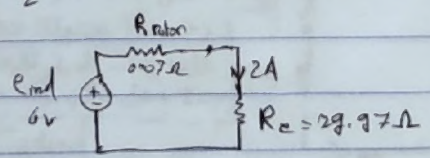 R rotor
0.03Ω
2A
e ind
6v
Re = 29.97Ω